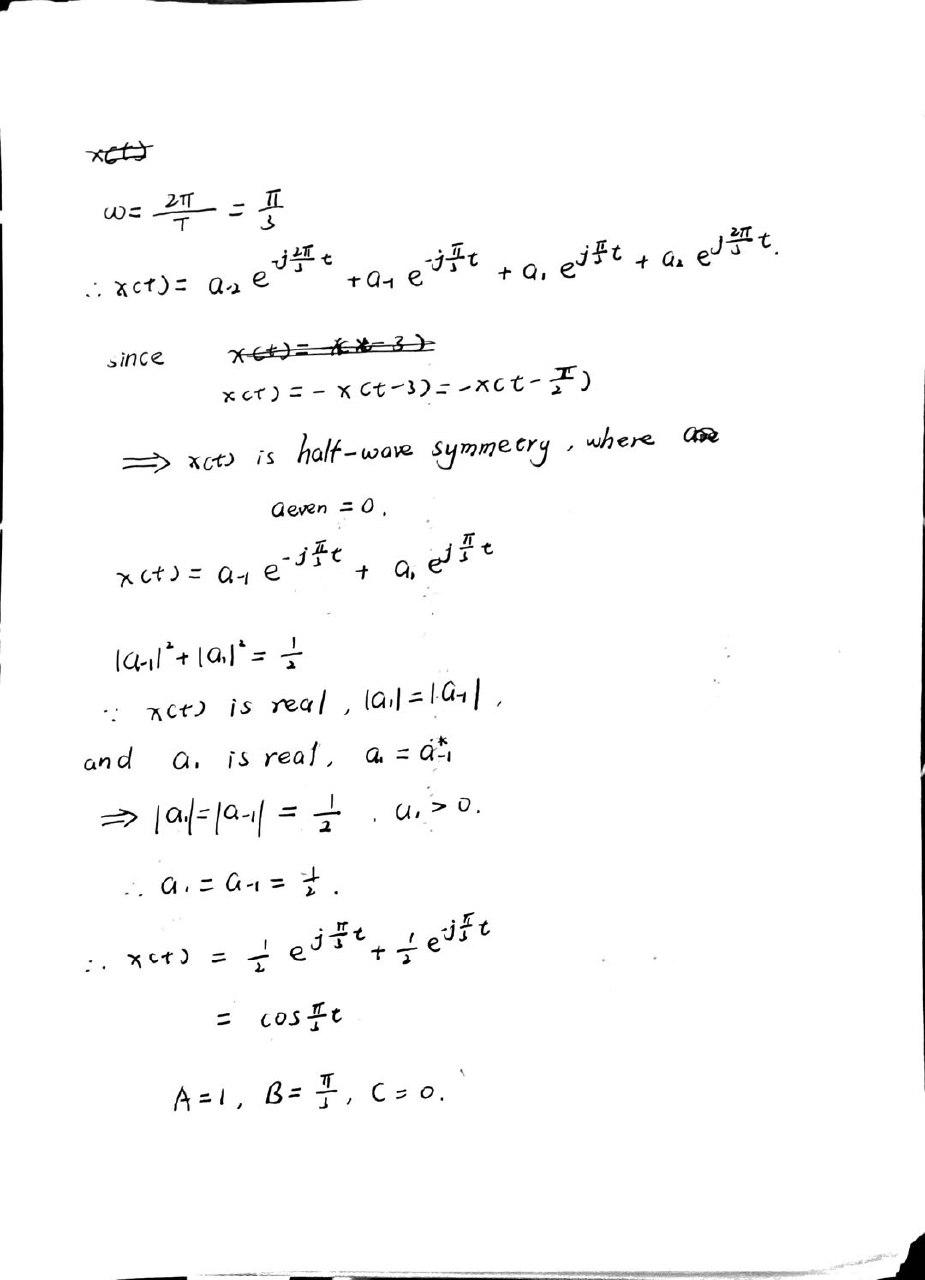 x(t)
ω = 2π/T = π/3
∴ x(t) = a₋₂ e^(-j 2π/3 t) + a₋₁ e^(-j π/3 t) + a₁ e^(j π/3 t) + a₂ e^(j 2π/3 t).
since x(t) = x(t-3)
x(t) = - x(t-3) = -x(t - T/2)
⟹ x(t) is half-wave symmetry, where are
a even = 0.
x(t) = a₋₁ e^(-j π/3 t) + a₁ e^(j π/3 t)
|a₋₁|² + |a₁|² = 1/2
∵ x(t) is real, |a₁| = |a₋₁|,
and a₁ is real, a₁ = a₋₁*
⟹ |a₁| = |a₋₁| = 1/2. a₁ > 0.
∴ a₁ = a₋₁ = 1/2.
∴ x(t) = 1/2 e^(j π/3 t) + 1/2 e^(-j π/3 t)
= cos π/3 t
A = 1, B = π/3, C = 0.